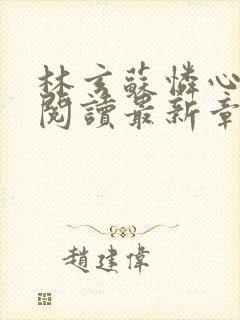 林玄蘇憐心
閱讀最新章
趙建偉